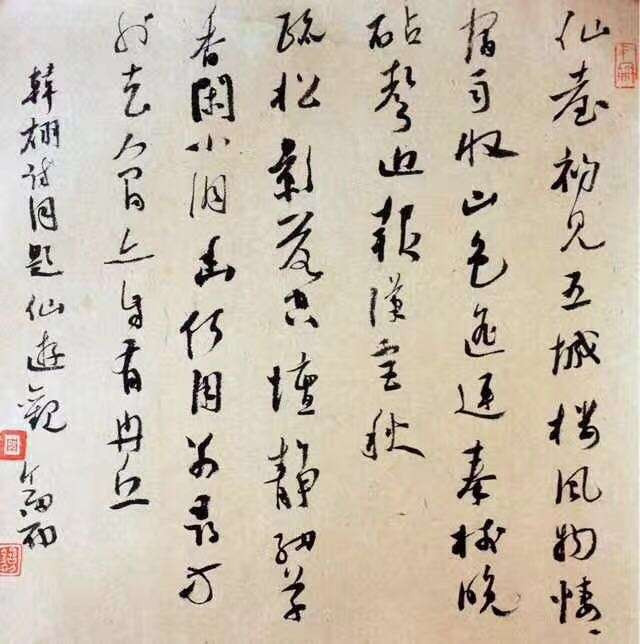 仙臺初見五城樓風物悽々
宿雨收山色遥連秦樹晚
砧聲近報漢宮秋
疏松影落空壇靜細草
香閑小洞幽何用別尋方
外去人間亦自有丹丘
韓翃詩同題仙遊觀